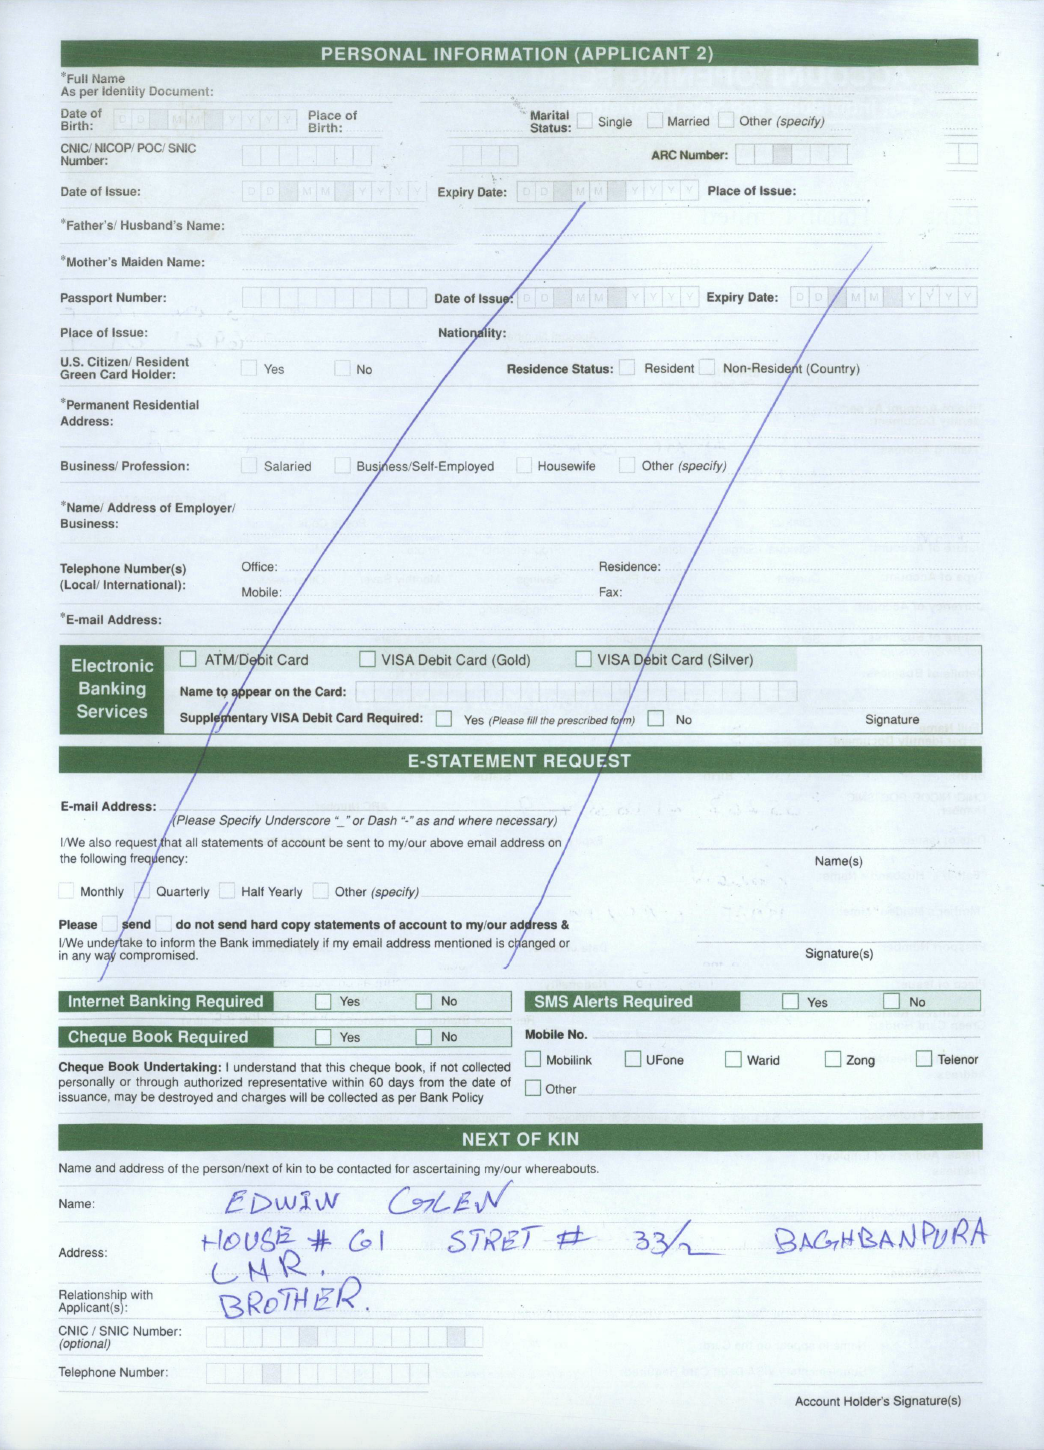 PERSONAL INFORMATION (APPLICANT 2)
*Full Name
As per Identity Document:
Date of Birth: D D M M Y Y Y Y Place of Birth: Marital Status: Single Married Other (specify)
CNIC/ NICOP/ POC/ SNIC Number: ARC Number:
Date of Issue: D D M M Y Y Y Y Expiry Date: D D M M Y Y Y Y Place of Issue:
*Father's/ Husband's Name:
*Mother's Maiden Name:
Passport Number: Date of Issue: D D M M Y Y Y Y Expiry Date: D D M M Y Y Y Y
Place of Issue: Nationality:
U.S. Citizen/ Resident Green Card Holder: Yes No Residence Status: Resident Non-Resident (Country)
*Permanent Residential
Address:
Business/ Profession: Salaried Business/Self-Employed Housewife Other (specify)
*Name/ Address of Employer/
Business:
Telephone Number(s) Office: Residence:
(Local/ International): Mobile: Fax:
*E-mail Address:
Electronic Banking Services
ATM/Debit Card VISA Debit Card (Gold) VISA Debit Card (Silver)
Name to appear on the Card:
Supplementary VISA Debit Card Required: Yes (Please fill the prescribed form) No Signature
E-STATEMENT REQUEST
E-mail Address:
(Please Specify Underscore "_" or Dash "-" as and where necessary)
I/We also request that all statements of account be sent to my/our above email address on
the following frequency:
Name(s)
Monthly Quarterly Half Yearly Other (specify)
Please send do not send hard copy statements of account to my/our address &
I/We undertake to inform the Bank immediately if my email address mentioned is changed or
in any way compromised.
Signature(s)
Internet Banking Required Yes No SMS Alerts Required Yes No
Cheque Book Required Yes No Mobile No.
Mobilink UFone Warid Zong Telenor
Other
Cheque Book Undertaking: I understand that this cheque book, if not collected
personally or through authorized representative within 60 days from the date of
issuance, may be destroyed and charges will be collected as per Bank Policy
NEXT OF KIN
Name and address of the person/next of kin to be contacted for ascertaining my/our whereabouts.
Name: EDWIN GLEN
Address: HOUSE # 61 STRET # 33/2 BAGHBANPURA
LHR.
Relationship with Applicant(s): BROTHER.
CNIC / SNIC Number:
(optional)
Telephone Number:
Account Holder's Signature(s)